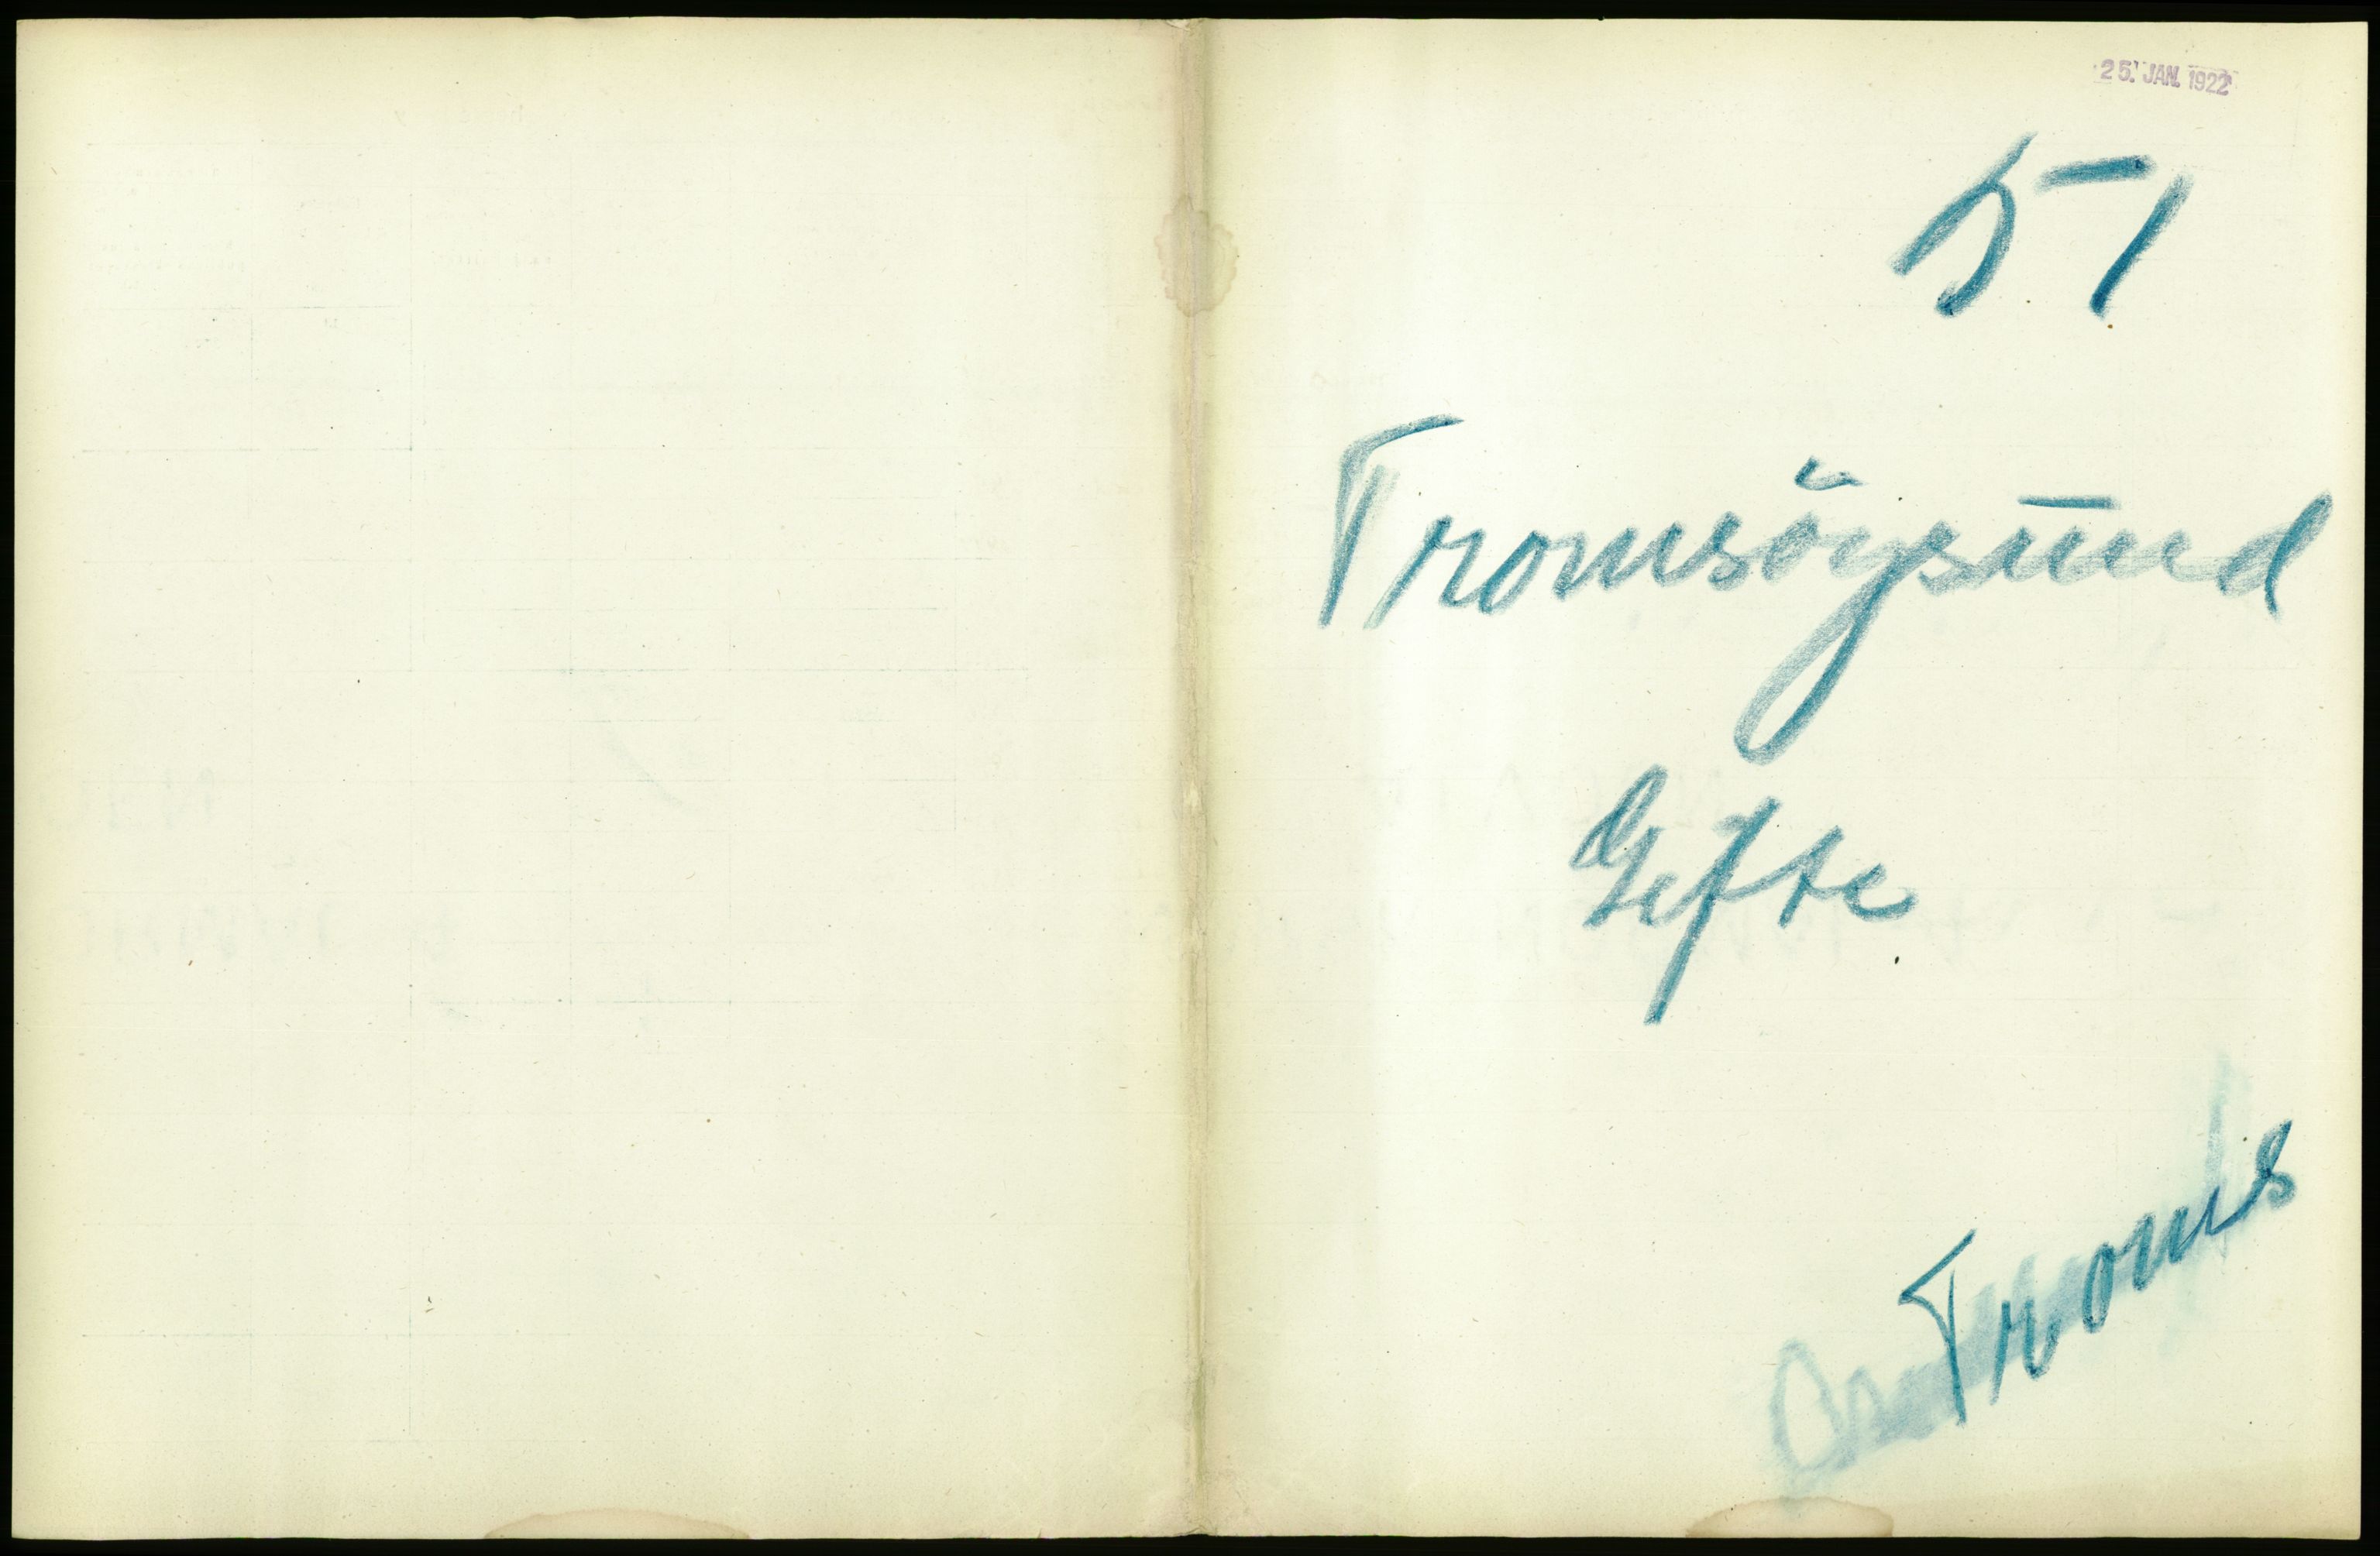 25. JAN. 1922
51
Tromsöysund
Gifte
Troms